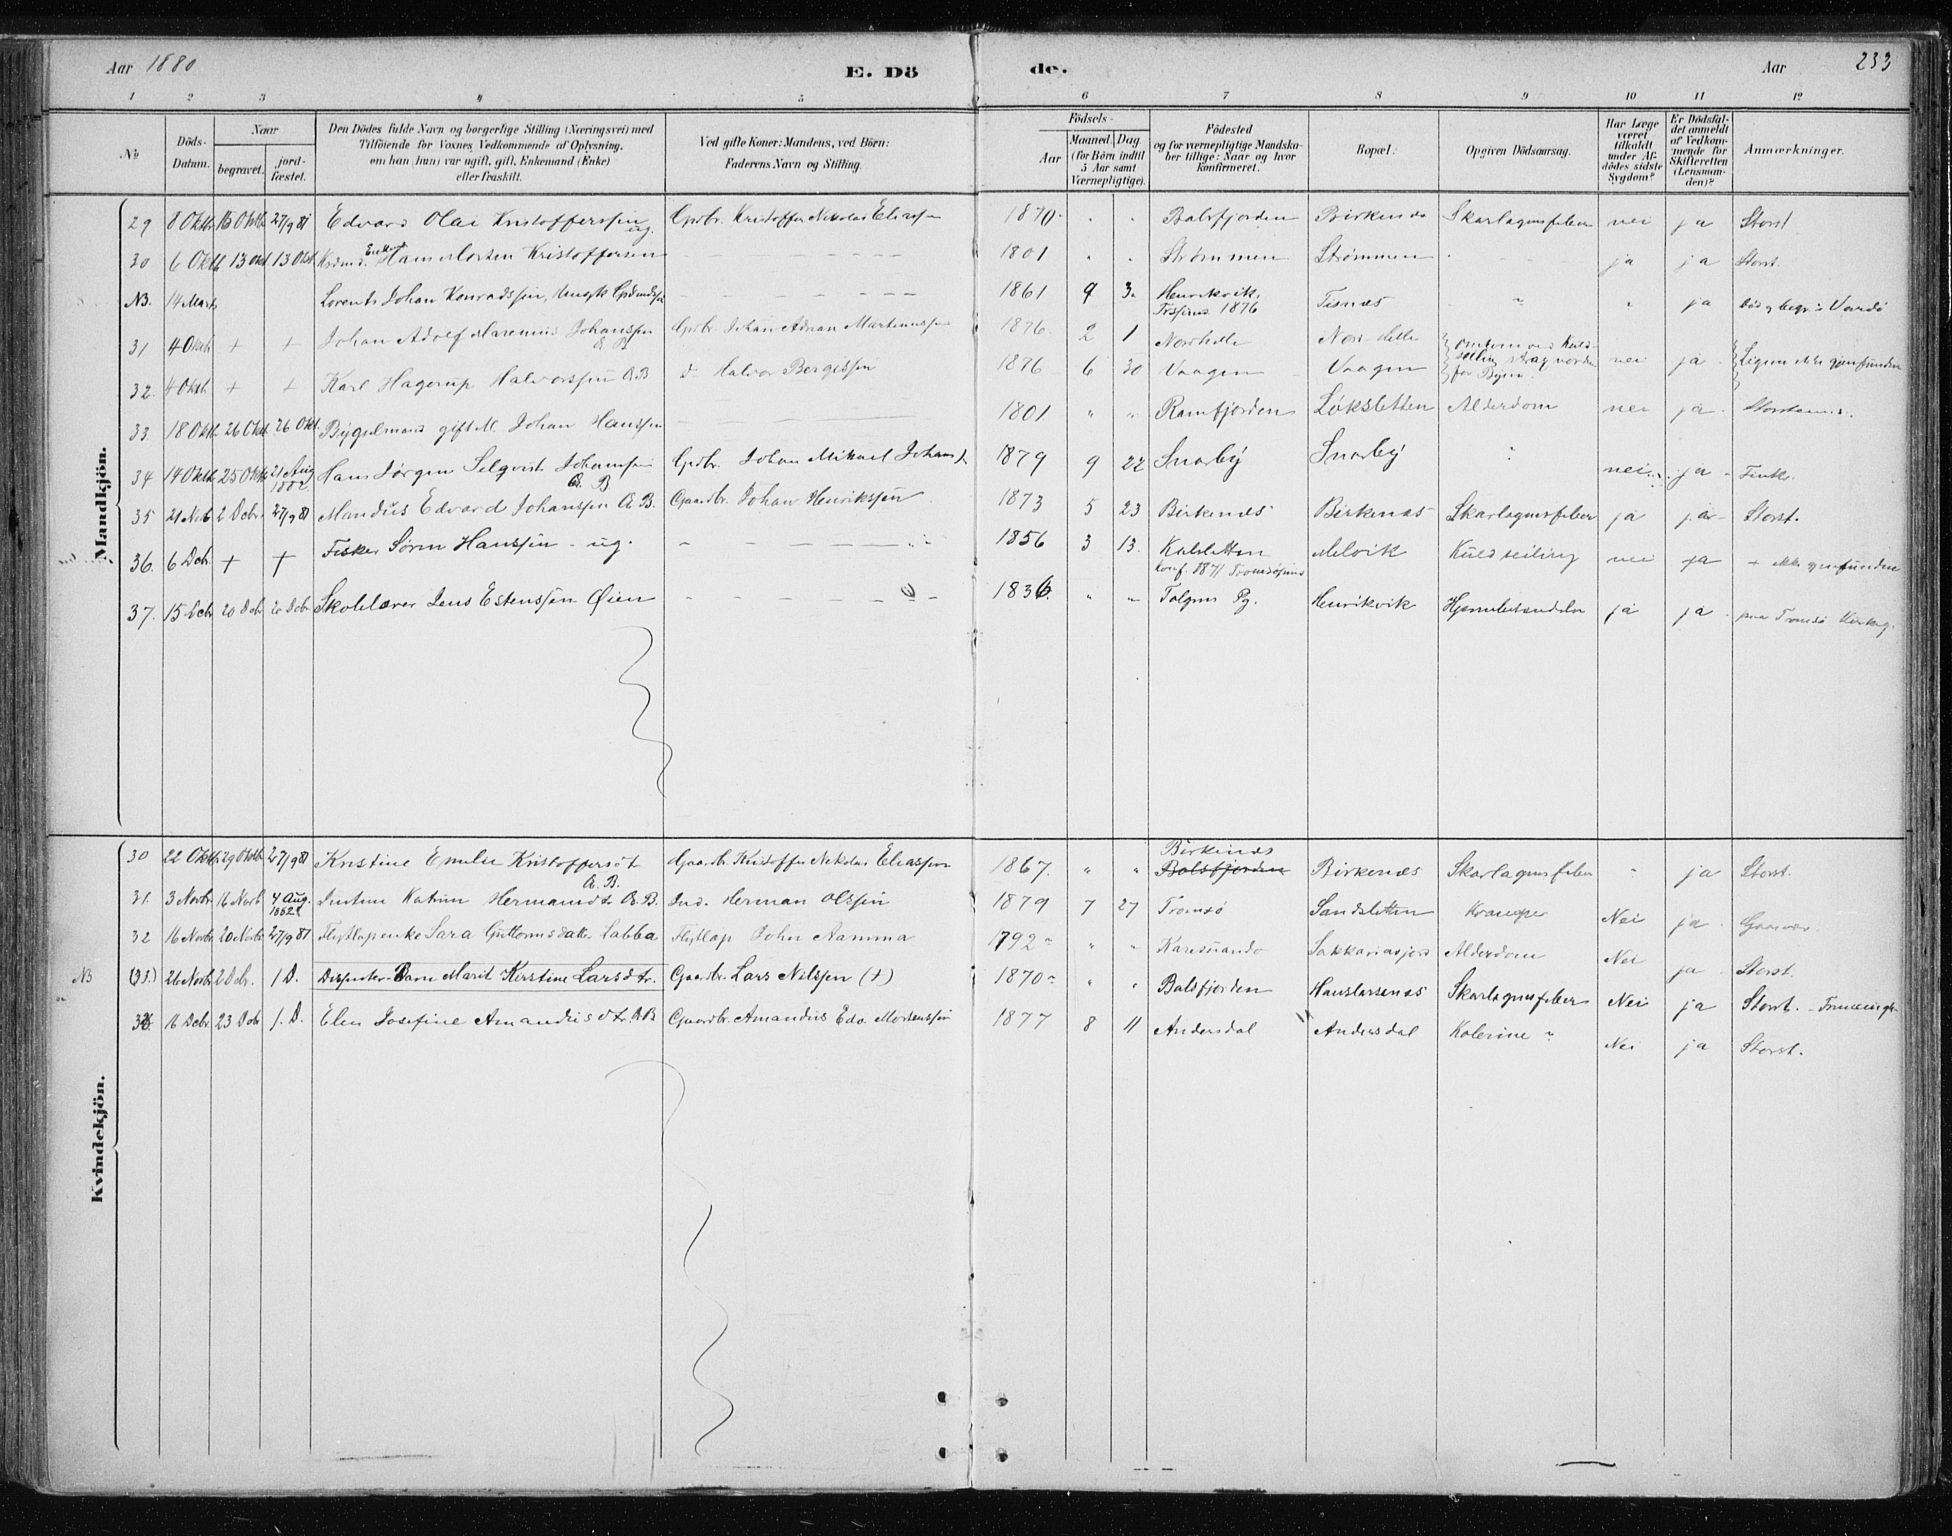 Aar 1880
E. Dö
de.
Aar
233
1 2 3 4 5 6 7 8 9 10 11 12
No
Döds-Datum.
Naar
begravet.
jord-fæstet.
Den Dödes fulde Navn og borgerlige Stilling (Næringsvei) med
Tilföiende for Voxnes Vedkommende af Oplysning,
om han (hun) var ugift, gift, Enkemand (Enke)
eller fraskilt.
Ved gifte Koner: Mandens, ved Börn:
Faderens Navn og Stilling.
Födsels-
Aar
Maaned
Dag
(for Börn indtil
5 Aar samt
Værnepligtige).
Födested
og for værnepligtige Mandska-
ber tillige: Naar og hvor
konfirmeret.
Bopæl.
Opgiven Dödsaarsag.
Har Læge
været
tilkaldt
under Af-
dödes sidste
Sygdom?
Er Dödsfal-
det anmeldt
af Vedkom-
mende for
Skifteretten
(Lensman-
den)?
Anmærkninger.
Mandkjön.
29 8 Oktb 16 Oktb 27/9 81 Edvard Olai Kristofferssen ug. Gpdbr. Kristoffer Nikolai Eliassen 1870 " " Balsfjorden Birkenes Skarlagensfeber nei ja Storst.
30 6 Oktb 13 Okt 13 Okt Enkem. Hans Morten Kristoffersen 1801 " " Strømmen Strømmen ja ja Storst.
NB. 14 Marts Lorents Johan Konradssen, 1861 9 3 Henrikvik, Tisnes " " ja Død og begr. i Vardø
1876
31 4 Oktb + + Johan Adolf Marenius Johanssen A B Gpdbr. Johan Adrian Martinussen 1876 2 1 Nordhella Nordhella nei ja Ligene ikke gjenfundne
32. 4 Oktb + + Karl Hagerup Halvorssen A B d Halvor Bergissen 1876 6 30 Vaagen Vaagen
33. 18 Oktb 26 Okt 26 Okt Bygselmand gift M. Johan Hanssen 1801 " " Ramfjorden Løksletten Alderdom nei ja
34 14 Oktb 25 Oktb 21 Aug 1882 Hans Jørgen Selqvist Johanssen A B Gpdbr. Johan Mikael Johanss. 1879 9 22 Snarby Snarby " nei ja
35 21 Novb 2 Debr. 27/9 81 Mandius Edvard Johanssen A B. Gaardbr. Johan Henrikssen 1873 5 23 Birkenes Birkenes Skarlagensfeber ja ja Storst.
36. 6 Debr. + + Fisker Søren Hanssen - ug. 1856 3 13. Kalsletten Melvik Kuldseiling nei ja + ikke gjenfunden
konf. 1871 Tromsøsund
37. 15 Debr 20 Debr 20 Debr Skolelærer Jens Estenssen Øien 1836. " " Tolgen Pg. Henrikvik Hjernebetændelse ja ja paa Tromsø Kirkeg.
Kvindekjön.
30 22 Oktb 29 Oktb 27/9 81 Kristine Emilie Kristoffersdt A. B. Gaardbr Kristoffer Nikolai Eliassen 1867. " " Birkenes Balsfjorden Birkenes Skarlagensfeber " ja Storst.
31. 3 Novbr 16 Novb 4 Aug. 1882 Katrine Hermansdt A. B. Ind. Herman Olssen 1879 7 27 Tromsø Sandsletten Krampe Nei ja
32 16 Novbr 20 Novbr 27/9 81 Flytlapenke Sara Guttormsdatter Labba Flytlap John Aamma 1792 " " Karesuando Sakkariasjord Alderdom Nei ja Storst.
NB 26 Novbr 2 Debr. 1 D. Dissenter-Barn Marit Kirstine Larsdtr. Gaardbr. Lars Nilssen (+) 1870 " " Balsfjorden Hanslarsenes Skarlagensfeber Nei ja Storst.
16 Debr 23 Debr 1. D. Elen Josefine Amandusdtr. A B Gaardbr. Amandus Edv. Mortenssen 1877 8 11 Andersdal Andersdal Kolerine Nei ja Storst.